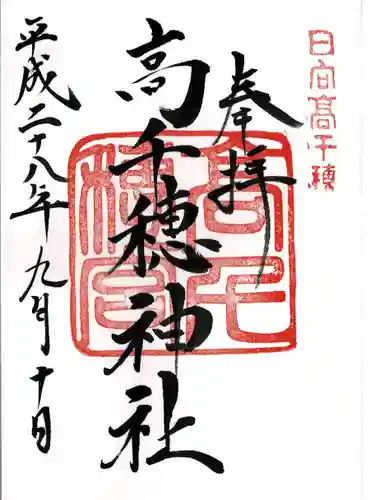 日向高千穂
奉拝
高千穂神社
平成二十八年九月十日